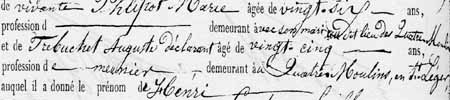 de vivante Phlipot Marie âgée de vingt-six ans,
profession d demeurant avec son mari audit lieu des Quatre Moulins
et de Trebuchet Auguste déclarant âgé de vingt-cinq ans,
profession de meunier demeurant à Quatre Moulins, en St Léger,
auquel il a donné le prénom de Henri